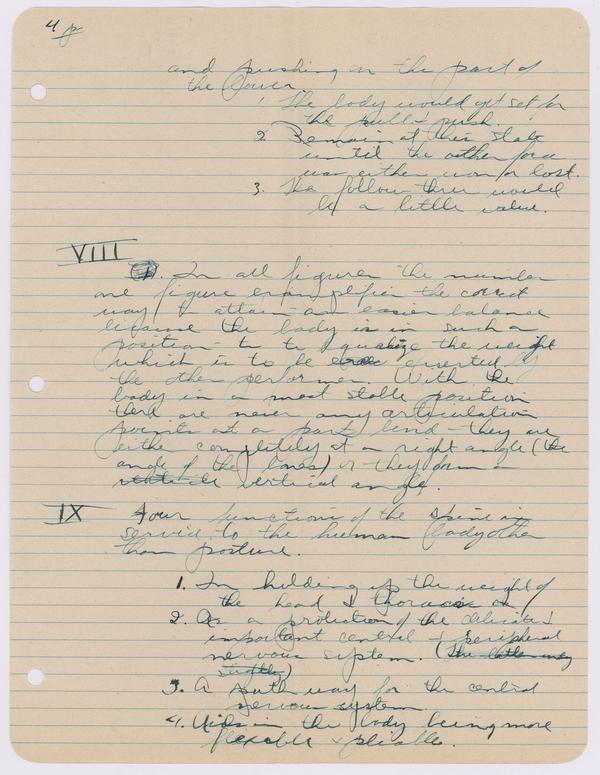 4
and pushing on the part of
the lower
1. The body would get set for
the pull & push.
2. Remain at this state
until the other force
was either won or lost.
3. The follow thru would
be a little value.
VIII
1. In all figures the number
one figure exemplifies the correct
way to attain an easier balance
because the body is in such a
position to equalize the weight
which is to be exerted by
the other performer. With the
body in a most stable position
there are never any articulation
points at a part bend - they are
either completely at a right angle (the
angle of the bones) or they form a
vertical angle.
IX Four functions of the spine in
service to the human body other
than posture.
1. In holding up the weight of
the head & thoracic
2. As a protection of the delicate &
important central & peripheral
nervous system. (The latter only
slightly)
3. A path way for the central
nervous system.
4. Aids in the body being more
flexible & pliable.